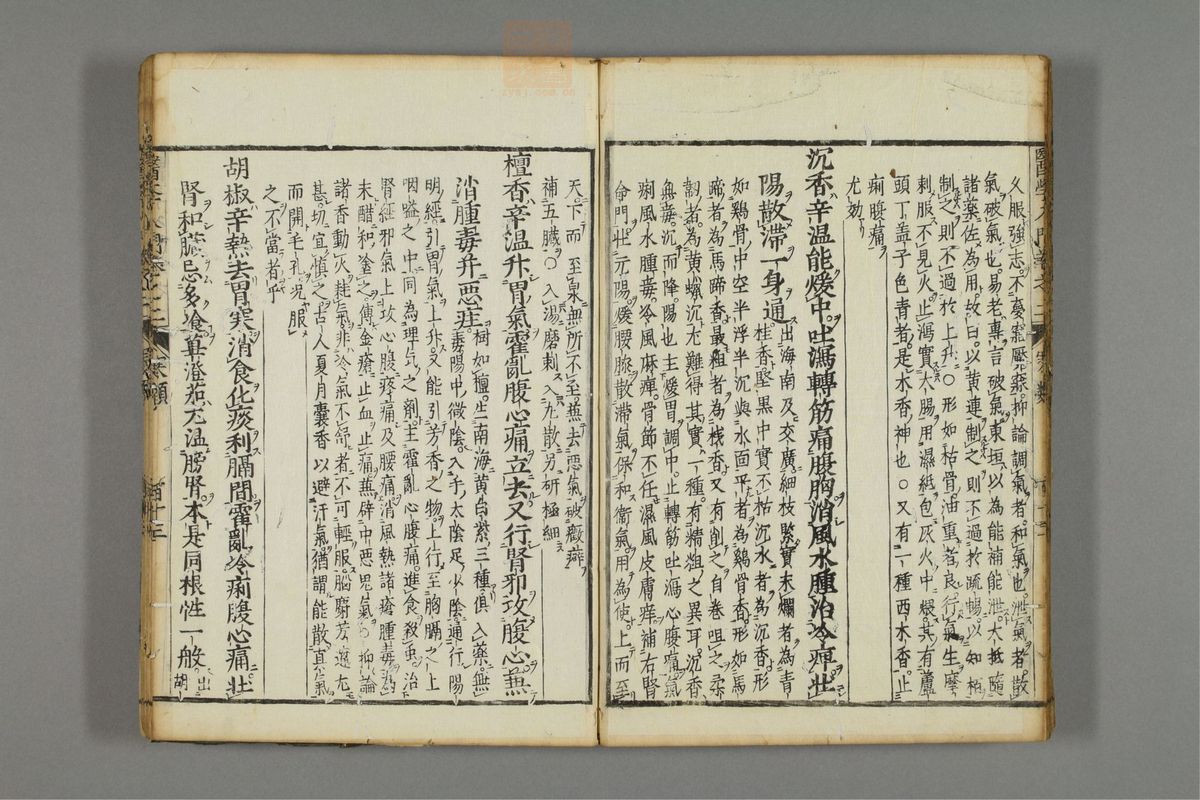 久服強志不夢寤魘寐抑論調氣者和氣也泄氣者散
氣破氣也易老專言破氣東垣以為能補能泄大抵隨
諸藥佐為用故曰以黃連制之則不過於疏暢以知栢
制之則不過於上升○形如枯骨油重者良行氣生磨
刺服不見火止瀉實大腸用濕紙包灰火中煨其有蘆
頭丁盖子色青者是木香神也○又有一種西木香止
痢腹痛
尤効
沉香辛温能煖中吐瀉轉筋痛腹胸消風水腫治冷痺壯
陽散滯一身通
出海南及交廣細枝緊實未爛者為青
桂香堅黒中實不枯沉水者為沉香形
如鷄骨中空半浮半沉與水面平者為鷄骨香形如馬
蹄者為馬蹄香最粗者為棧香又有削之自卷咀之柔
韌者為黃蠟沉尤難得其實一種有精粗之異耳沉香
無毒沉而降陽也主煖胃調中止轉筋吐瀉心腹痛氣
痢風水腫毒冷風麻痺骨節不任濕風皮膚痒補右腎
命門壯元陽煖腰膝散滯氣保和衛氣用為使上而至
天下而至泉無所不至兼去惡氣破癥癖
補五臟○入湯磨刺入丸散另研極細
檀香辛温升胃氣霍亂腹心痛立去又行腎邪攻腹心兼
消腫毒并惡疰
樹如檀生南海黃白紫三種俱入藥無
毒陽中微陰入手太陰足少陰通行陽
明經引胃氣上升又能引芳香之物上行至胸膈之上
咽嗌之中同為理氣之劑主霍亂心腹痛進食殺虫治
腎經邪氣上攻心腹疼痛及腰痛消風熱諸瘡腫毒為
末醋和塗之傅金瘡止血止痛兼辟中惡鬼氣○抑論
諸香動火耗氣非冷氣不舒者不可輕服腦麝芳邇尤
甚切宜慎之古人夏月囊香以避汗氣猶謂能散真氣
而開毛孔况服
之不當者乎
胡椒辛熱去胃寒消食化痰利膈間霍亂冷痢腹心痛壯
腎和臟忌多飡蓽澄茄尤温膀腎本是同根性一般
出
胡